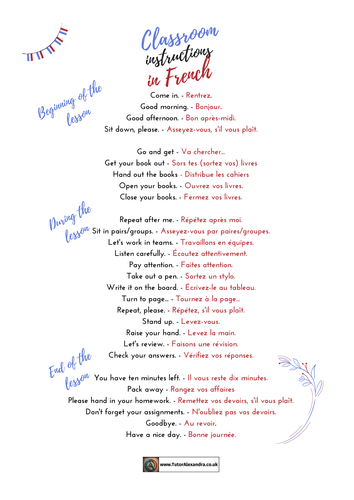 Classroom
instructions
in French
Beginning of the
lesson
Come in. - Rentrez.
Good morning. - Bonjour.
Good afternoon. - Bon après-midi.
Sit down, please. - Asseyez-vous, s'il vous plaît.
Go and get - Va chercher...
Get your book out - Sors tes (sortez vos) livres
Hand out the books - Distribue les cahiers
Open your books. - Ouvrez vos livres.
Close your books. - Fermez vos livres.
During the
lesson
Repeat after me. - Répétez après moi.
Sit in pairs/groups. - Asseyez-vous par paires/groupes.
Let's work in teams. - Travaillons en équipes.
Listen carefully. - Écoutez attentivement.
Pay attention. - Faites attention.
Take out a pen. - Sortez un stylo.
Write it on the board. - Écrivez-le au tableau.
Turn to page... - Tournez à la page...
Repeat, please. - Répétez, s'il vous plaît.
Stand up. - Levez-vous.
Raise your hand. - Levez la main.
Let's review. - Faisons une révision.
Check your answers. - Vérifiez vos réponses.
End of the
lesson
You have ten minutes left. - Il vous reste dix minutes.
Pack away - Rangez vos affaires
Please hand in your homework. - Remettez vos devoirs, s'il vous plaît.
Don't forget your assignments. - N'oubliez pas vos devoirs.
Goodbye. - Au revoir.
Have a nice day. - Bonne journée.
www.TutorAlexandra.co.uk